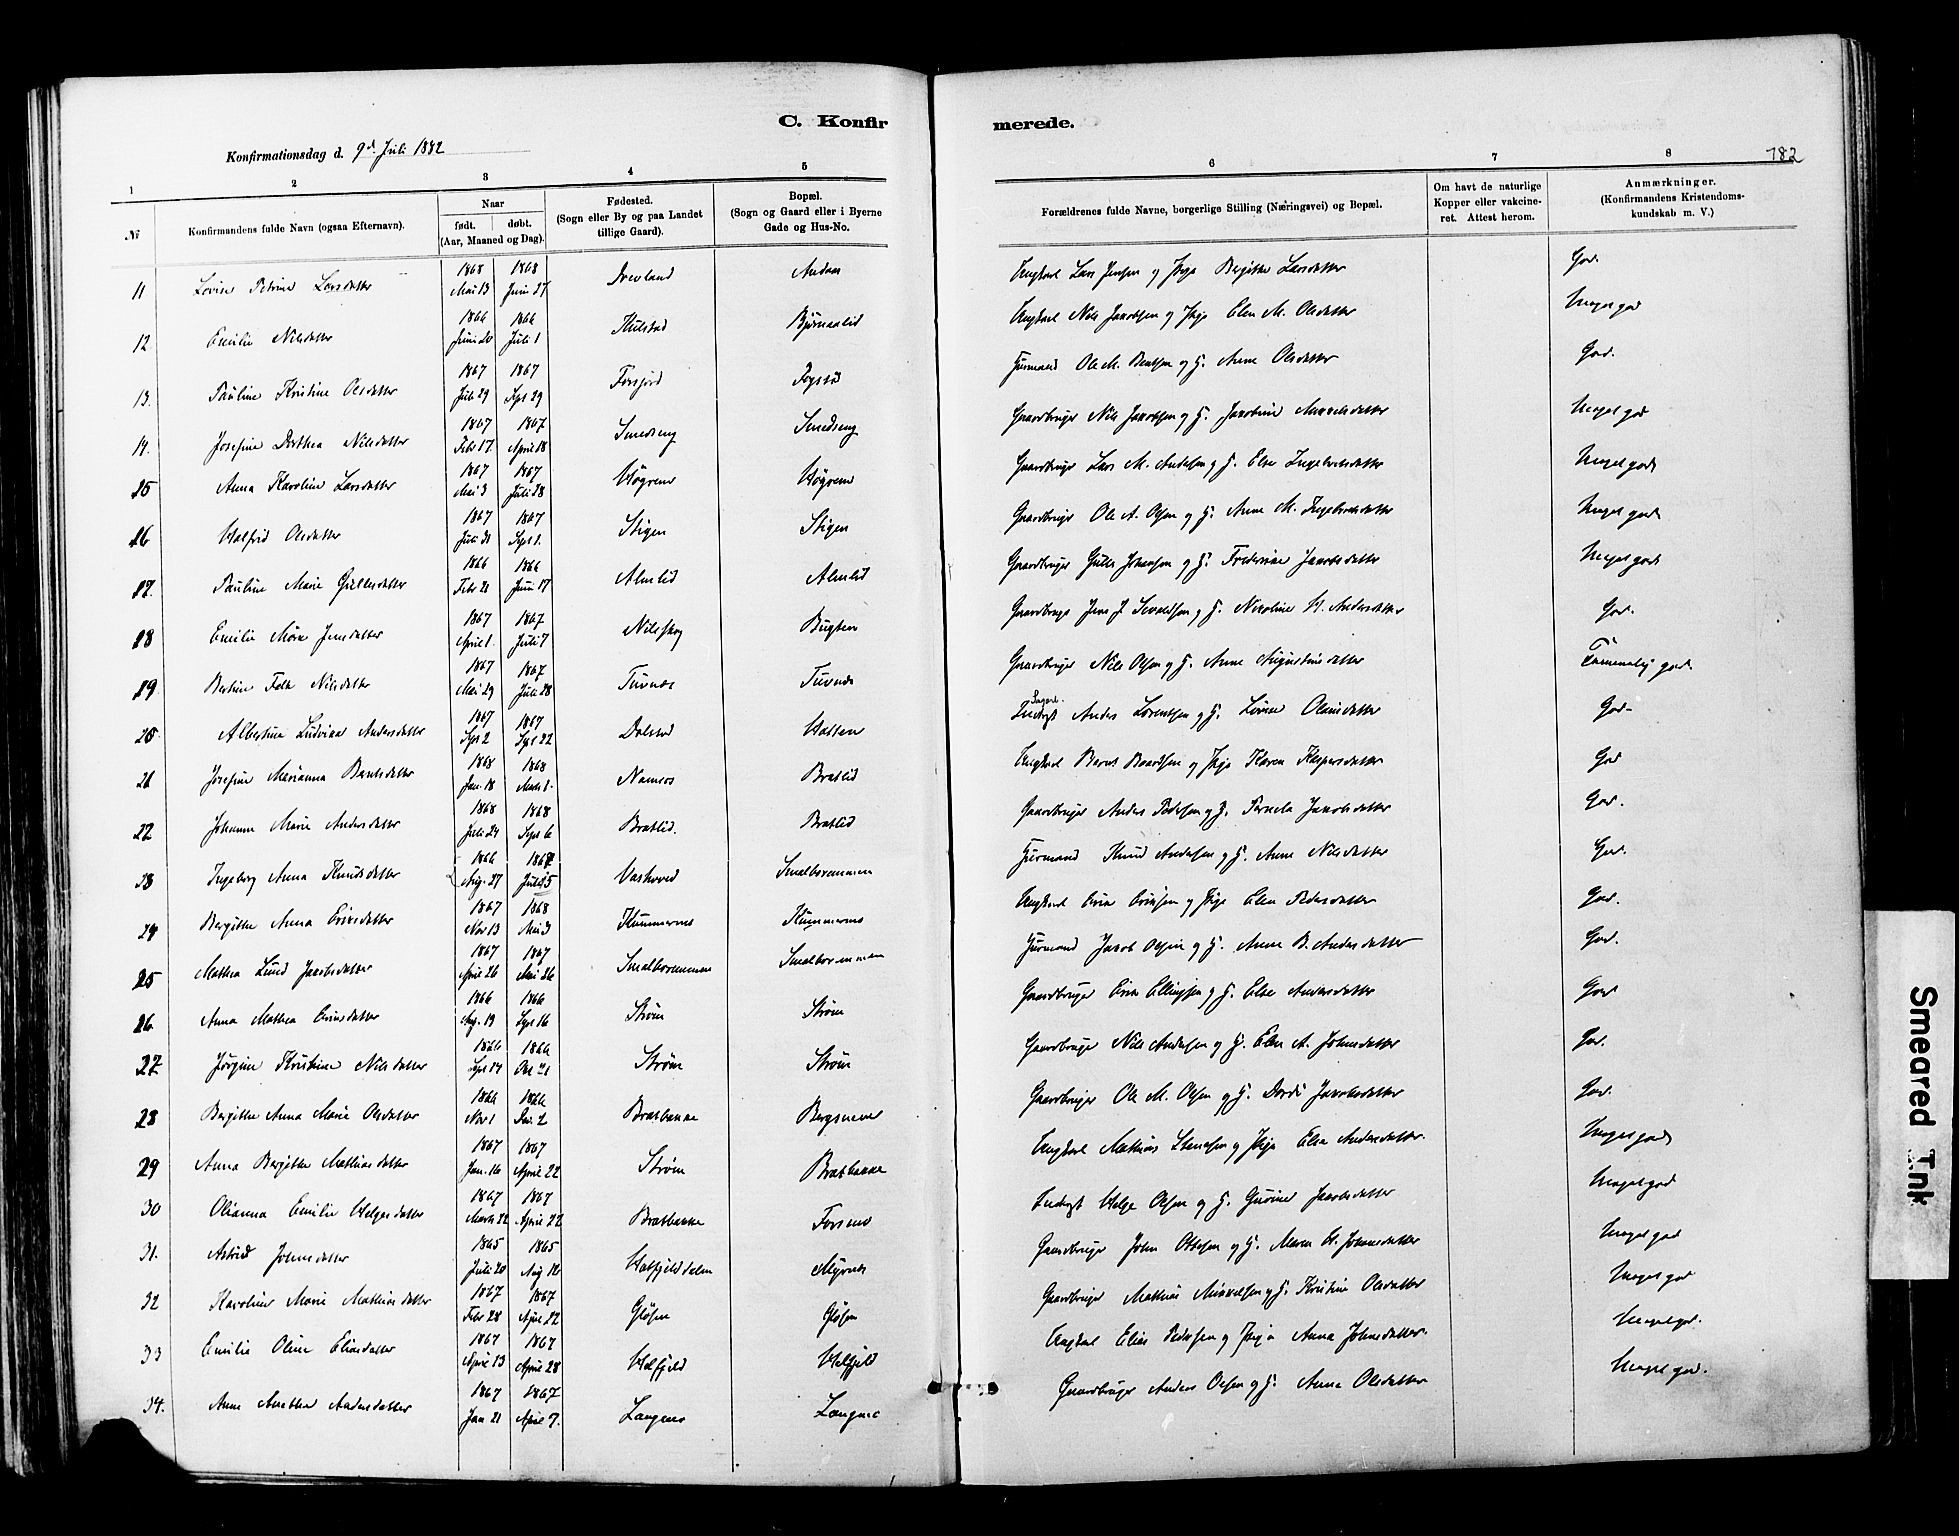 C. Konfir merede.
182
Konfirmationsdag d. 9d. Juli 1882
1 2 3 4 5 6 7 8
№ Konfirmandens fulde Navn (ogsaa Efternavn). Naar født. døbt. (Aar, Maaned og Dag). Fødested. (Sogn eller By og paa Landet tillige Gaard). Bopæl. (Sogn og Gaard eller i Byerne Gade og Hus-No. Forældrenes fulde Navne, borgerlige Stilling (Næringsvei) og Bopæl. Om havt de naturlige Kopper eller vakcineret. Attest herom. Anmærkninger. (Konfirmandens Kristendomskundskab m. V.)
11 Lovise Petrine Larsdatter 1868 Mai 13 1868 Juni 27 Drevland Ungkarl Lars Jensen og Pige Bergitte Larsdatter God.
12 Emilie Nilsdatter 1866 1866 Juli 1 Kulstad Bjørnaalid Ungkarl Nils Jakobsen og Pige Elen M. Olsdatter Meget god
13. Pauline Kristine Olsdatter 1867 Juli 29 1867 Sept 29 Forsjord Ole M. Bentsen og H. Anne Olsdatter God.
14. Josefine Dorthea Nilsdatter 1867 Febr 17. 1867 April 18 Smedseng Smedseng Gaardbruger Nils Jakobsen og H. Jakobine Mikkelsdatter Meget god
15 Anna Karoline Larsdatter 1867 Mai 3 1867 Juli 28 Høgrem Høgrem Gaardbruger Lars M. Andersen og H. Else Ingebrigtsdatter Meget god
16 Halfrid Olsdatter 1867 Juli 31 1867 Sept 1. Stigen Stigen Gaardbruger Ole A. Olsen og H. Anne M. Meget god
17. Pauline Marie 1866 Febr 21 1866 Juni 17 Almlid Almlid Gaardbruger Johansen og H. Frederikke Jakobsdatter Meget god
18 Emilie Jensdatter 1867 April 1. 1867 Juli 7 Nilsskog Bugten Gaardbruger Jens J. Sivaldsen og H. Nicoline H. Andersdatter God.
19. Nilsdatter 1867 Mai 29 1867 Juli 28 Tuvnes Tuvnes Gaardbruger Nils Olsen og H. Anne Augustinusdatter Temmelig god.
20 Albertine Ludvikke Andersdatter 1867 Sept 2 1867 Sept 22 Dolstad Halsen Anders Lorentsen og H. God.
21 Josefine Marianna Berntsdatter 1868 Jan. 18 1868 Marts 1. Namsos Bratlid Ungkarl Bernt og Pige Karen Kaspersdatter God
22 Johanne Marie Andersdatter 1868 Juli 24 1868 Sept 6 Bratlid. Bratlid Gaardbruger Anders Pedersen og H. Jakobsdatter God.
23 Ingeborg Anna Knudsdatter 1866 Aug. 27 1867 Smalboremmen Knud Andersen og H. Anne Nilsdatter God.
24 Bergitte Anna Eriksdatter 1867 Nov 13 1868 Mai 3 Ungkarl Erik Eriksen og Pige Elen Pedersdatter God.
25 Mathea Lund Jakobsdatter 1867 April 26 1867 Mai 26 Smalboremmen Smalboremmen Jakob Olsen og H. Anne B. Andersdatter God.
26. Anna Mathea Eriksdatter 1866 Aug. 19 1866 Sept 16 Strøm Strøm Gaardbruger Erik Ellingsen og H. Else Andersdatter God
27 Jørgine Kristine Nilsdatter 1866 Sept 14 1866 Okt 21 Strøm Strøm Gaardbruger Nils Andersen og H. Else A. Johnsdatter God.
28 Bergitte Anna Marie Olsdatter 1866 Nov 1 1866 Dec. 2 Bratbakke Bergsnever Gaardbruger Ole M. Olsen og H. Jakobsdatter God.
29 Anna Bergitte Mathiasdatter 1867 Jan. 16 1867 April 22 Strøm Bratbakke Ungkarl Mathias Stensen og Pige Elen Andersdatter. Meget god
30 Olianna Emilie Helgesdatter 1867 Marts 22 1867 April 22 Bratbakke Forsmo Inderst Helge Olsen og H. Jakobsdatter Meget god
31. Astrid Johnsdatter 1865 Juli 20 1865 Aug 12 Halfjelddalen Myrnes Gaardbruger John Ottesen og H. Maren Johnsdatter Meget god
32 Karoline Marie Mathiasdatter 1867 Febr 28 1867 April 22 Gløsen Gløsen Gaardbruger Mathias Mikkelsen og H. Kristine Olsdatter Meget god
33 Emilie Oline Eliasdatter 1867 April 13 1867 April 28 Halfjeld Halfjeld Ungkarl Elias Pedersen og Pige Anna Johnsdatter. Meget god.
34. Anne Andersdatter 1867 Jan 21 1867 April 7. Langnes Langnes Gaardbruger Anders Olsen og H. Anne Olsdatter Meget god.
Smeared Ink